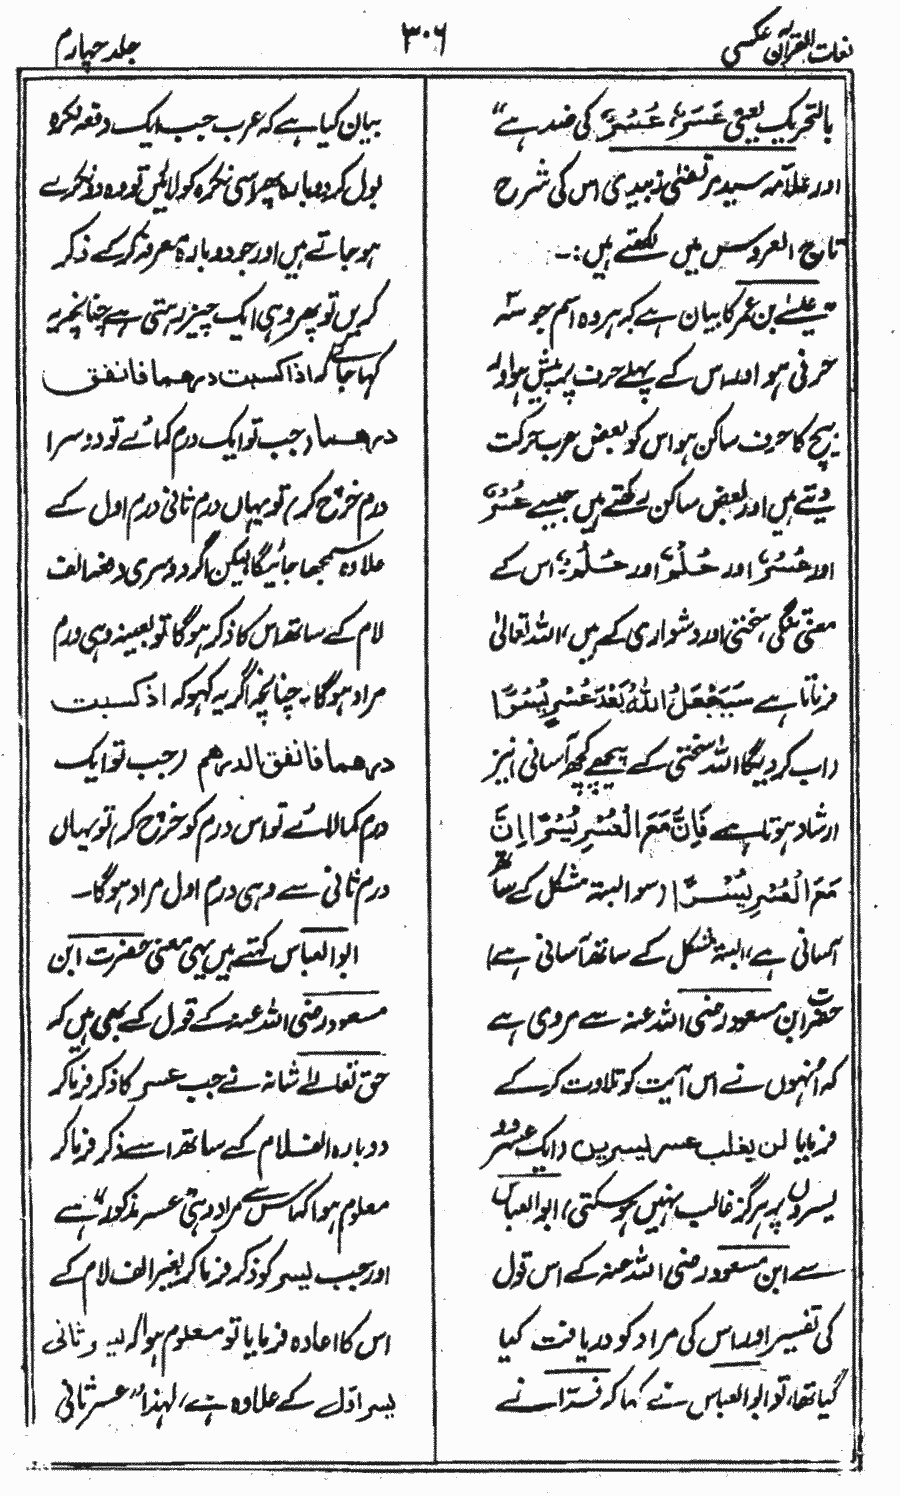 لغات القرآن عکسی
۳۰۶
جلد چہارم
بالتحریک یعنی عَسَرٌ، عُسُرٌ کی ضد ہے"
اور علامہ سید مرتضیٰ زبیدی اس کی شرح
تاج العروس میں لکھتے ہیں:۔
عیسیٰ بن عمر کا بیان ہے کہ ہر وہ اسم جو سہ
حرفی ہو اور اس کے پہلے حرف پر پیش ہو اور
بیچ کا حرف ساکن ہو اس کو بعض عرب حرکت
دیتے ہیں اور بعض ساکن رکھتے ہیں جیسے عُسْرٌ
اور عُسُرٌ اور حُلْمٌ اور حُلُمٌ، اس کے
معنی تنگی، سختی اور دشواری کے ہیں، اللہ تعالیٰ
فرماتا ہے سَيَجْعَلُ اللهُ بَعْدَ عُسْرٍ يُسْرًا
(اب کر دیگا اللہ سختی کے پیچھے کچھ آسانی) نیز
ارشاد ہوتا ہے فَاِنَّ مَعَ الْعُسْرِ يُسْرًا اِنَّ
مَعَ الْعُسْرِ يُسْرًا (سو البتہ مشکل کے ساتھ
آسانی ہے، البتہ مشکل کے ساتھ آسانی ہے)
حضرت ابن مسعود رضی اللہ عنہ سے مروی ہے
کہ انہوں نے اس آیت کو تلاوت کر کے
فرمایا لن یغلب عسر یسرین (ایک عسر دو
یسروں پر ہرگز غالب نہیں ہو سکتی) ابو العباس
سے ابن مسعود رضی اللہ عنہ کے اس قول
کی تفسیر اور اس کی مراد کو دریافت کیا
گیا تھا، تو ابو العباس نے کہا کہ فرّاء نے
بیان کیا ہے کہ عرب جب ایک دفعہ نکرہ
بول کر دوبارہ پھر اسی نکرہ کو لائیں تو وہ دو نکرے
ہو جاتے ہیں اور جو دوبارہ معرفہ کر کے ذکر
کریں تو پھر وہی ایک چیز رہتی ہے چنانچہ یہ
کہا جائے کہ اذا کسبت درھما فانفق
درھما (جب تو ایک درم کمائے تو دوسرا
درم خرچ کر) تو یہاں درم ثانی درم اول کے
علاوہ سمجھا جائیگا لیکن اگر دوسری دفعہ الف
لام کے ساتھ اس کا ذکر ہوگا تو بعینہ وہی درم
مراد ہوگا، چنانچہ اگر یہ کہو کہ اذا کسبت
درھما فانفق الدرھم (جب تو ایک
درم کما لائے تو اس درم کو خرچ کر) تو یہاں
درم ثانی سے وہی درم اول مراد ہوگا۔
ابو العباس کہتے ہیں یہی معنی حضرت ابن
مسعود رضی اللہ عنہ کے قول کے بھی ہیں کہ
حق تعالےٰ شانہ نے جب عسر کا ذکر فرما کر
دوبارہ الف لام کے ساتھ اسے ذکر فرما کر
معلوم ہوا کہ اس سے مراد وہی عسر مذکور ہے
اور جب یسر کو ذکر فرما کر بغیر الف لام کے
اس کا اعادہ فرمایا تو معلوم ہوا کہ یسر ثانی
یسر اوّل کے علاوہ ہے، لہذا عسر ثانی